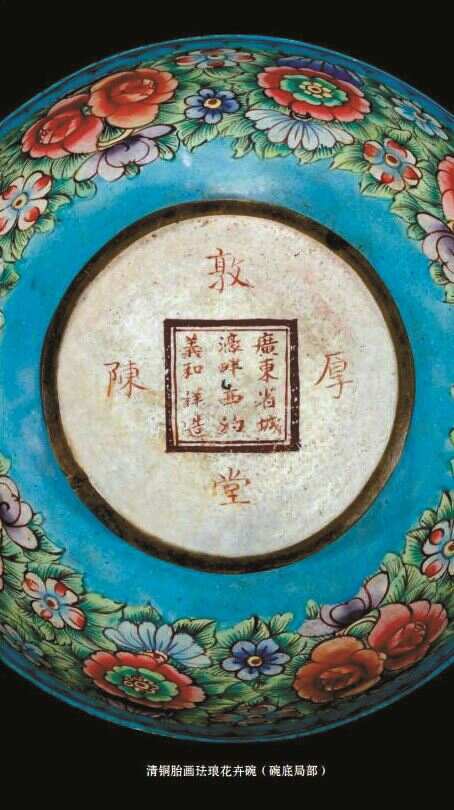 敦
陳
廣東省城
濠畔西約
義和祥造
厚
堂
清铜胎画珐琅花卉碗（碗底局部）